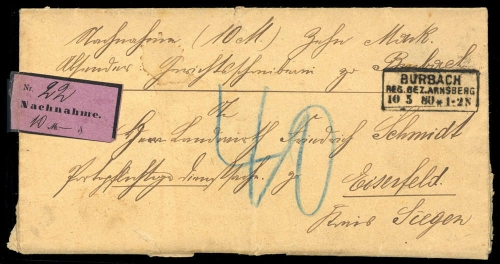 Nachnahme (10 M.) Zehn Mark.
Absender Gerichtsschreiberei zu Burbach
Nr. 22
Nachnahme.
10 M — ₰
BURBACH
REG. BEZ. ARNSBERG
10 5 80 * 1-2 N
An
Herrn Landwirth Friedrich Schmidt
40
Portopflichtige Dienstsache. zu Eiserfeld.
Kreis Siegen